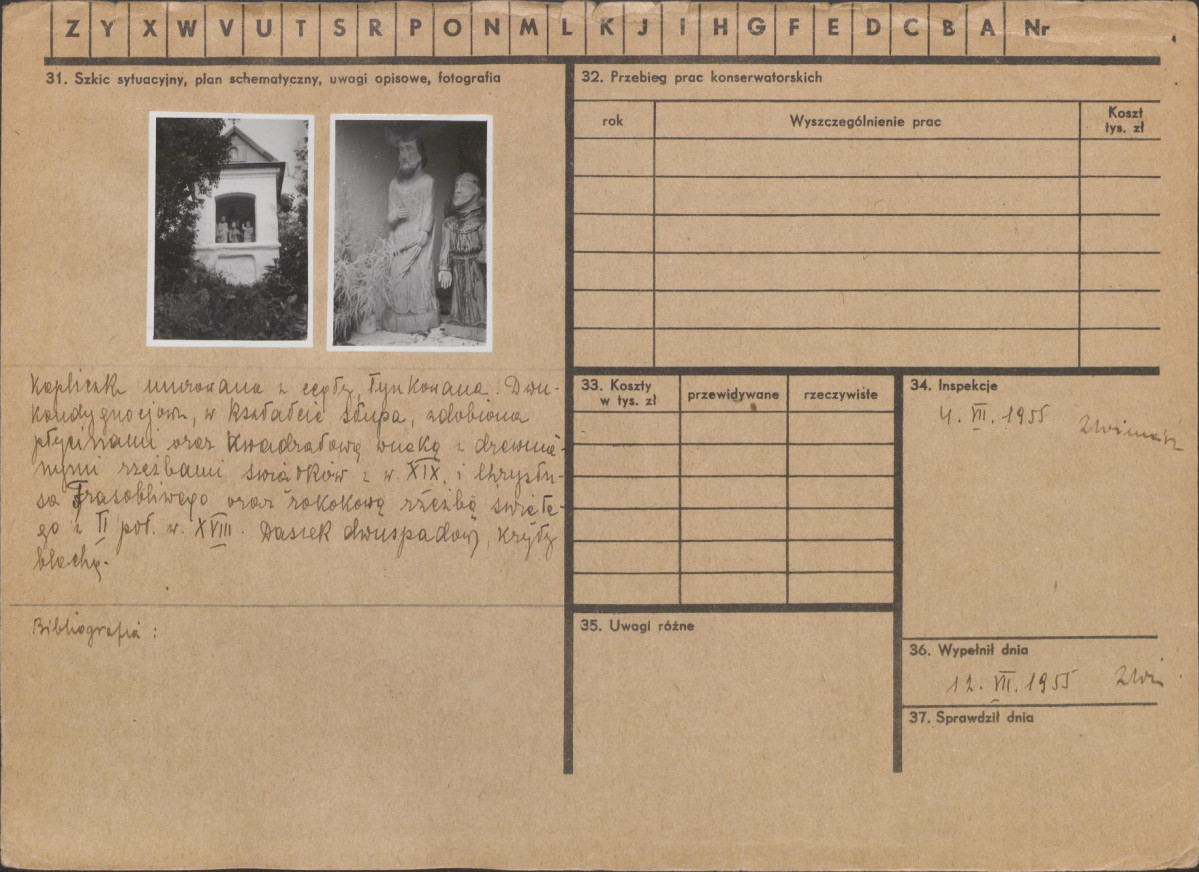 Z Y X W V U T S R P O N M L K J I H G F E D C B A Nr
31. Szkic sytuacyjny, plan schematyczny, uwagi opisowe, fotografia
Kapliczk murowana z cegły, tynkowana. Dwu-
kondygnacjowa, w kształcie słupa, zdobiona
płycinami oraz kwadratową wnęką z drewnia-
nymi rzeźbami świątków z w. XIX. i Chrystu-
sa Frasobliwego oraz rokokową rzeźbą święte-
go z II poł. w. XVIII. Daszek dwuspadowy, kryty
blachą.
Bibliografia:
32. Przebieg prac konserwatorskich
rok
Wyszczególnienie prac
Koszt
tys. zł
33. Koszty
w tys. zł
przewidywane
rzeczywiste
34. Inspekcje
4. VII. 1955
35. Uwagi różne
36. Wypełnił dnia
12. VII. 1955
37. Sprawdził dnia